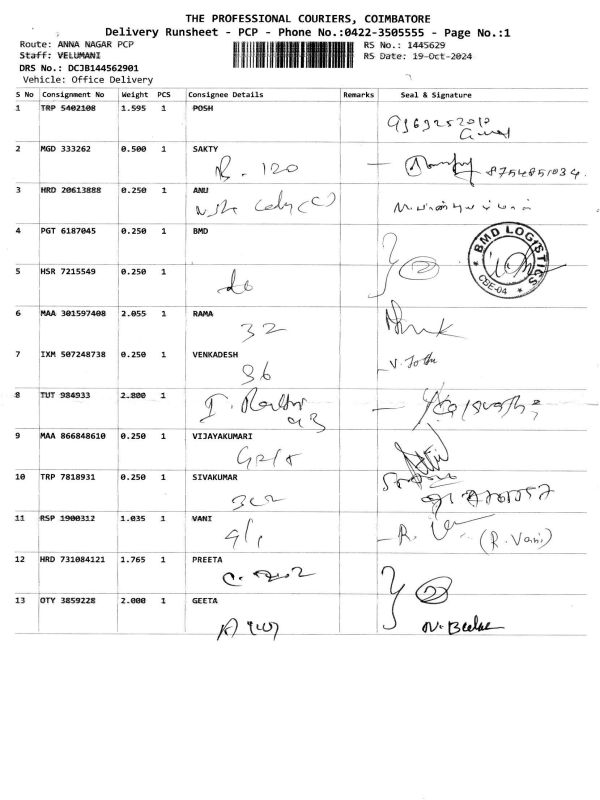 THE PROFESSIONAL COURIERS, COIMBATORE
Delivery Runsheet - PCP - Phone No.:0422-3505555 - Page No.:1
Route: ANNA NAGAR PCP RS No.: 1445629
Staff: VELUMANI RS Date: 19-Oct-2024
DRS No.: DCJB144562901
Vehicle: Office Delivery
S No Consignment No Weight PCS Consignee Details Remarks Seal & Signature
1 TRP 5402108 1.595 1 POSH
2 MGD 333262 0.500 1 SAKTY
B. 120 8754851034.
3 HRD 20613888 0.250 1 ANU
4 PGT 6187045 0.250 1 BMD
2 BMD LOGISTICS CBE-04
5 HSR 7215549 0.250 1
do
6 MAA 301597408 2.055 1 RAMA
32
7 IXM 507248738 0.250 1 VENKADESH
36
8 TUT 984933 2.800 1
9 MAA 866848610 0.250 1 VIJAYAKUMARI
10 TRP 7818931 0.250 1 SIVAKUMAR
11 RSP 1900312 1.035 1 VANI
(R. Vani)
12 HRD 731084121 1.765 1 PREETA
2
13 OTY 3859228 2.000 1 GEETA